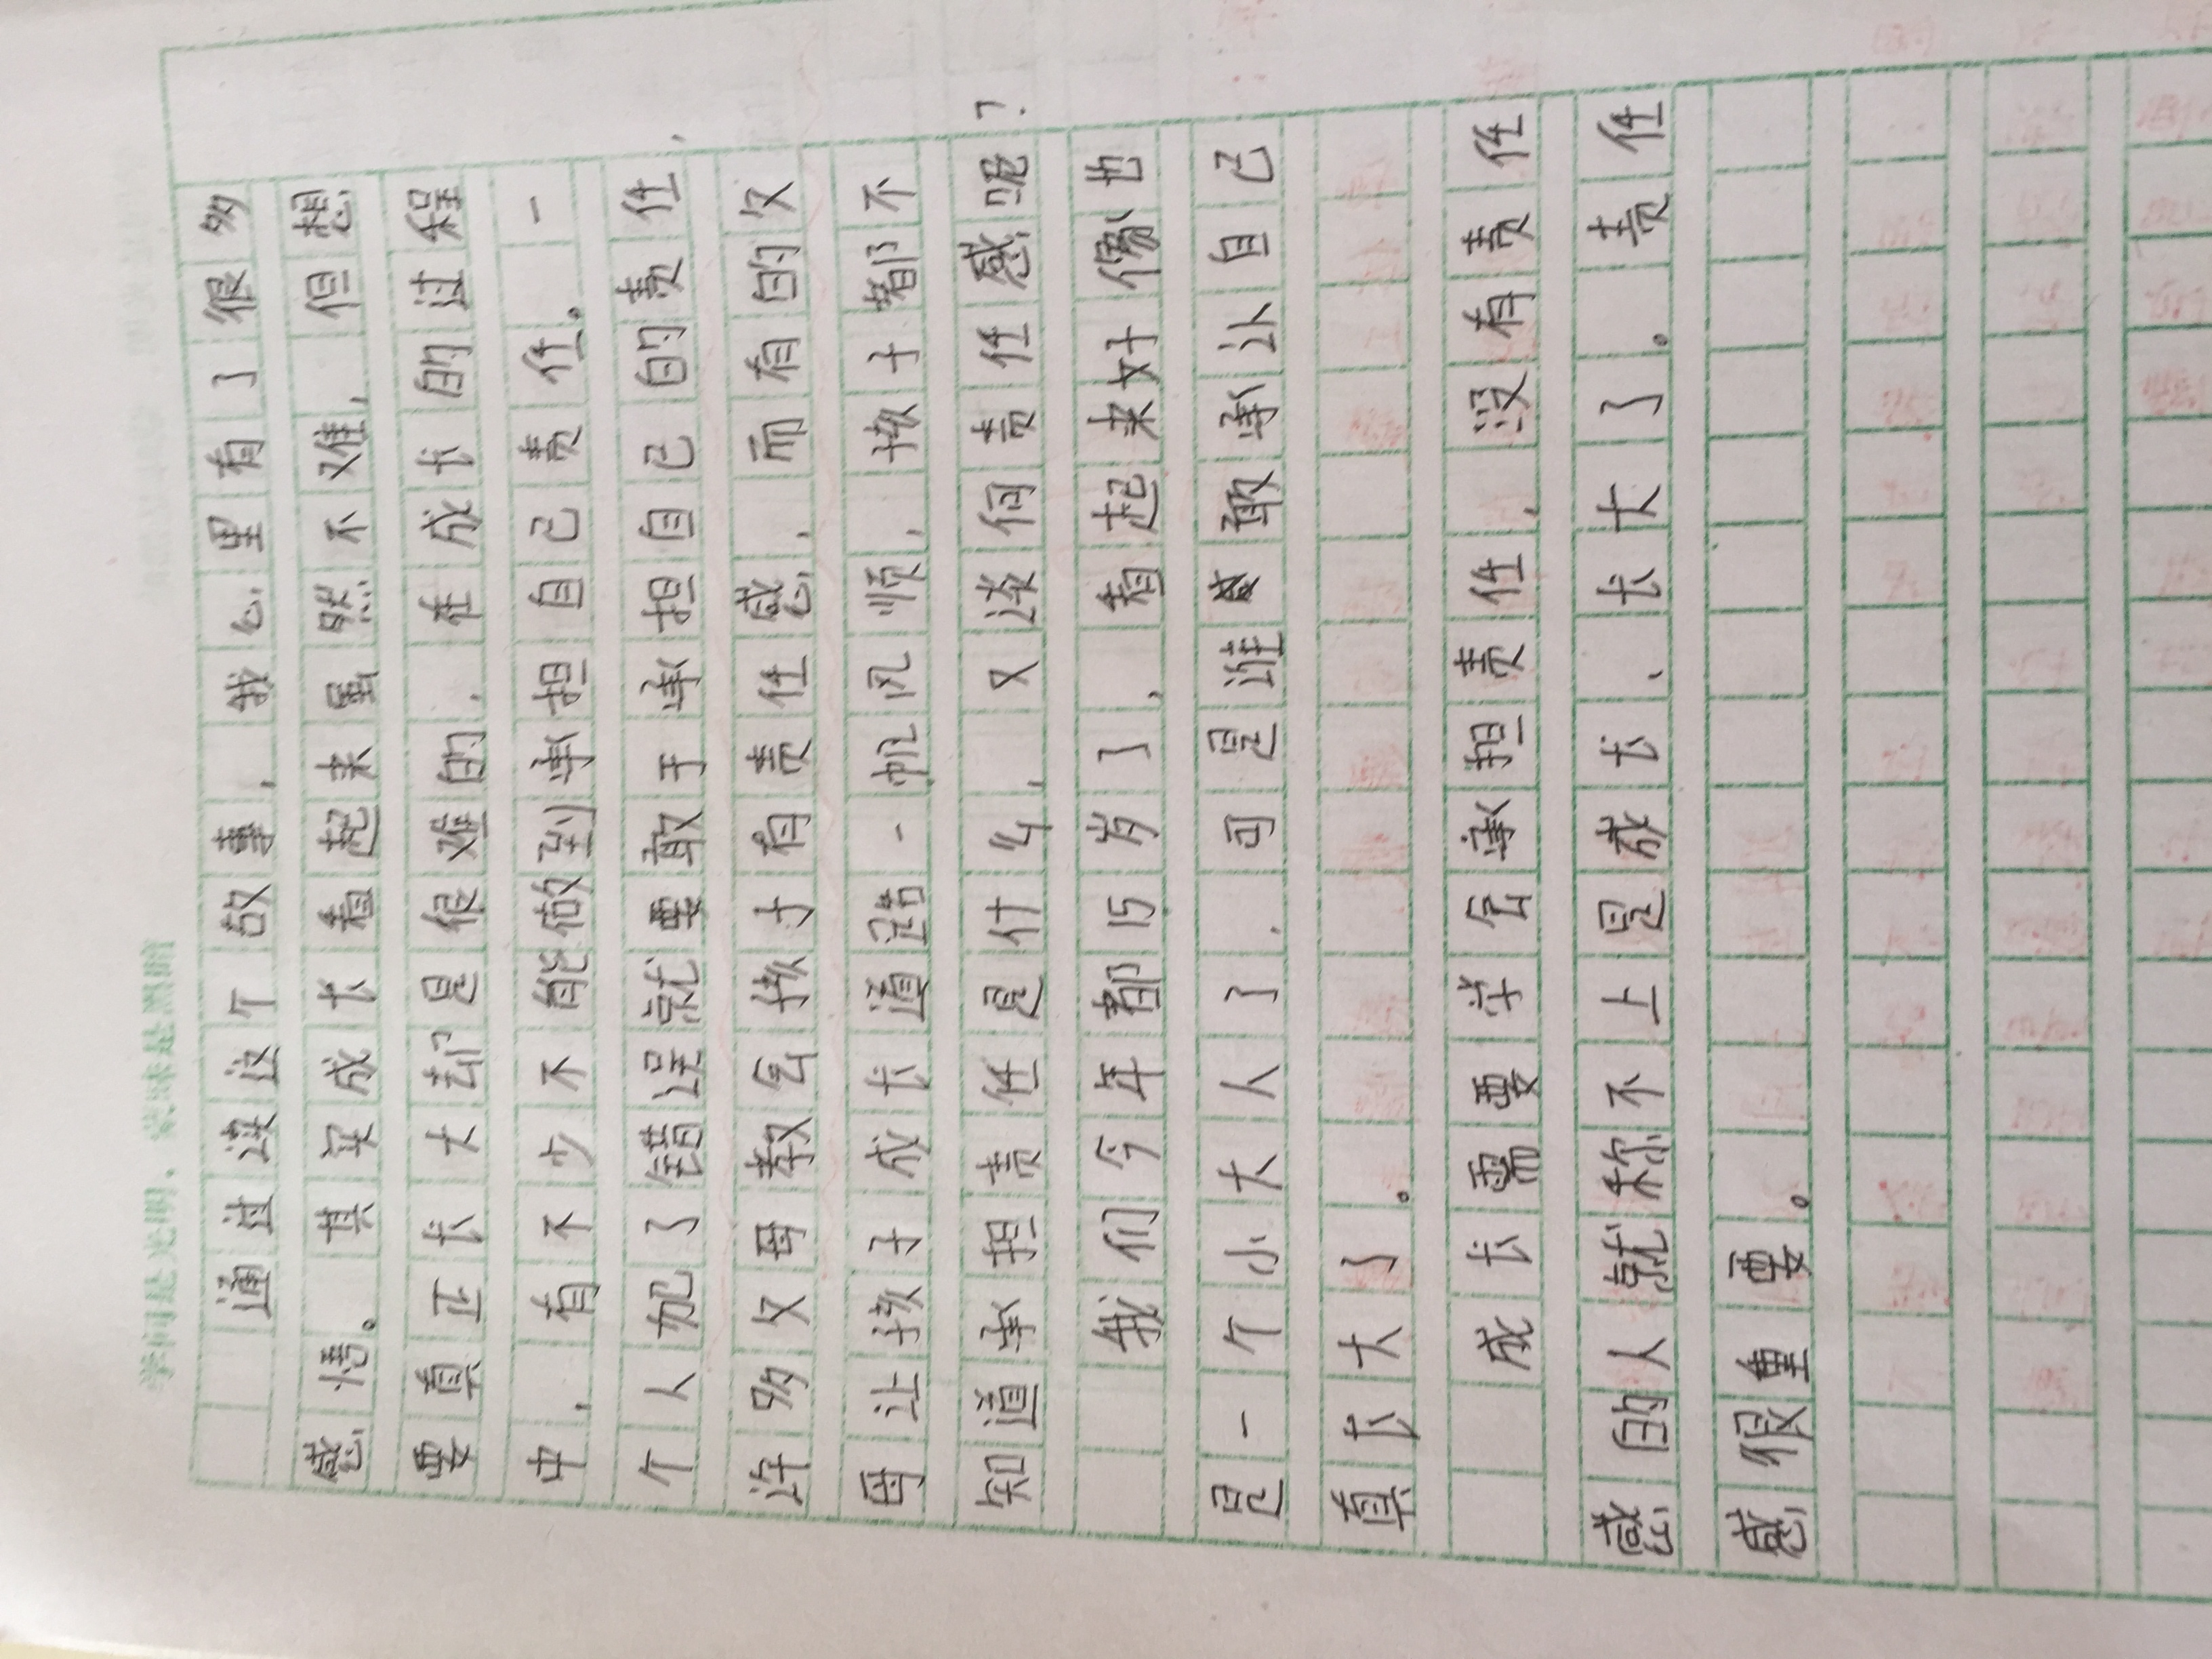 学问是光明，蒙昧是黑暗
通过读这个故事，我心里有了很多
感情。其实成长看起来虽然不难，但想
要真正长大却是很难的，在成长的过程
中，有不少不能做到承担自己责任。一
个人犯了错误就要敢于承担自己的责任，
许多父母教会孩子有责任感，而有的父
母让孩子成长道路一帆风顺，孩子都不
知道承担责任是什么，又谈何责任感呢？
我们今年都15岁了，看起来好像也
是一个小大人了，可是谁敢承认自己
真长大了。
成长需要学会承担责任，没有责任
感的人就称不上是成长、长大了。责任
感很重要。